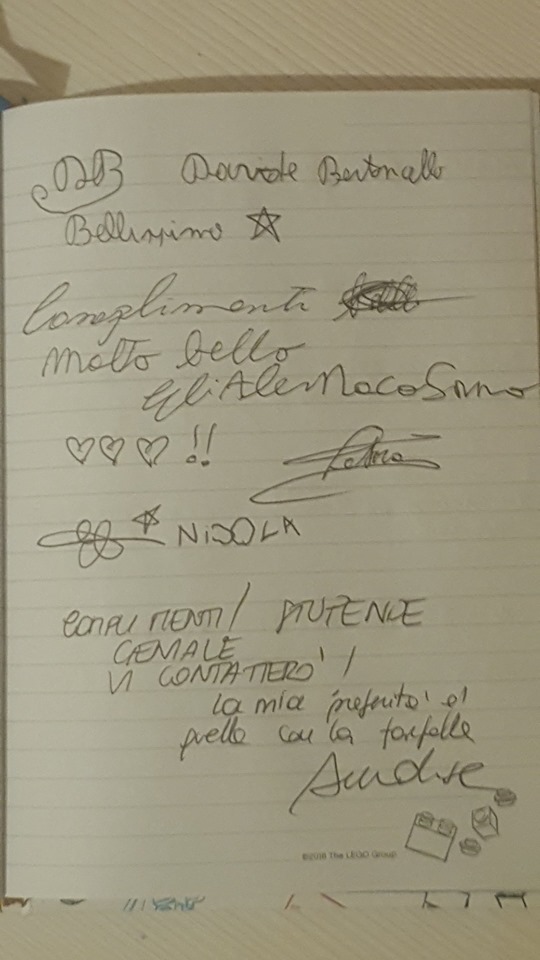 DB Davide Bertonallo
Bellissimo
Complimenti
Molto bello
!!
NiCOLA
COMPLIMENTI!
GENIALE
VI CONTATTERO' !
La mia preferita e'
quella con la farfalla
©2018 The LEGO Group